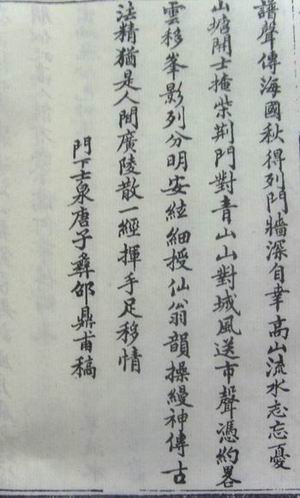 譜聲傳海國秋得列門牆深自幸高山流水志忘憂
山塘開士掩柴荆門對青山山對城風送市聲憑約畧
雲移峯影列分明安絃細授仙翁韻操縵神傳古
法精猶是人間廣陵散一經揮手足移情
門下士泉唐子彝邵鼎甫稿